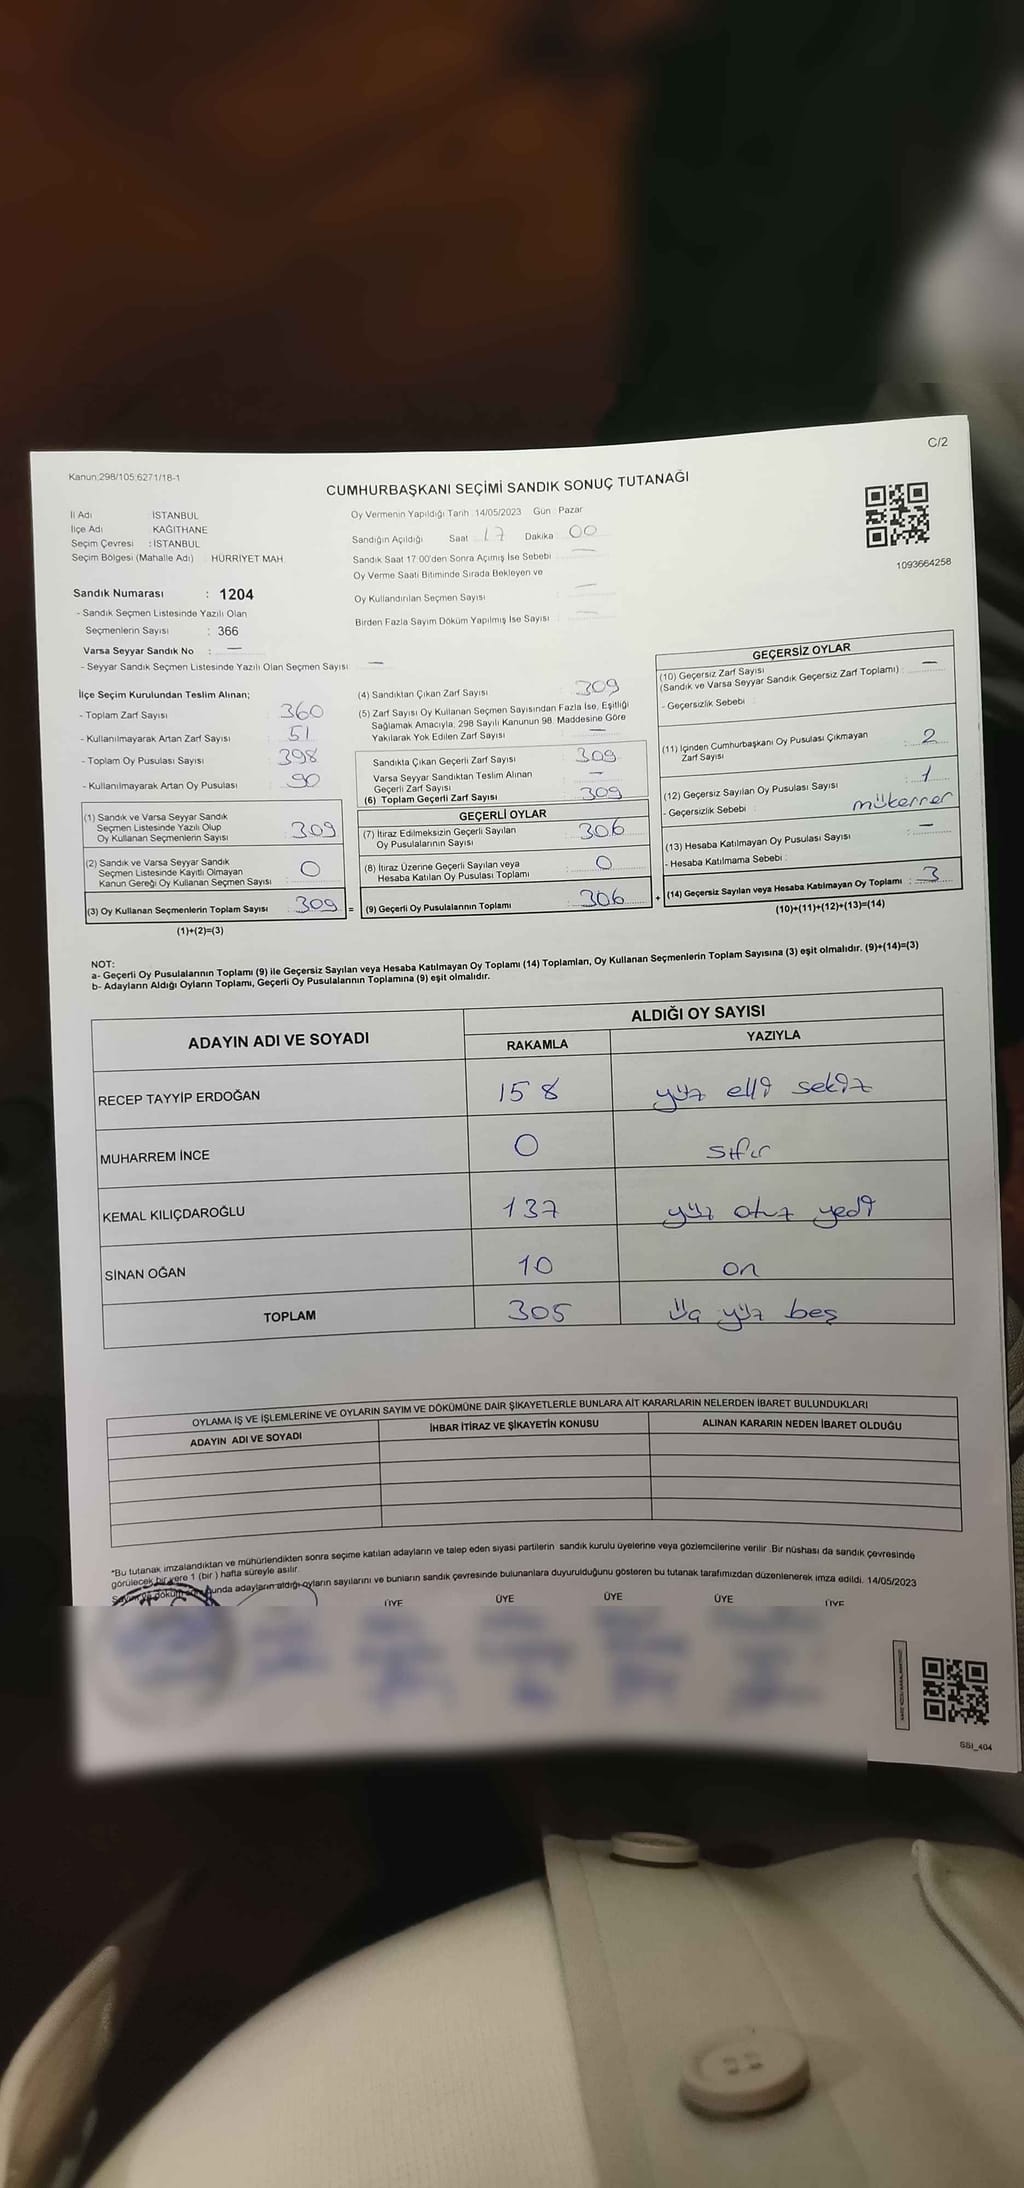 C/2
Kanun:298/105;6271/18-1
CUMHURBAŞKANI SEÇİMİ SANDIK SONUÇ TUTANAĞI
İl Adı : İSTANBUL
İlçe Adı : KAĞITHANE
Seçim Çevresi : İSTANBUL
Seçim Bölgesi (Mahalle Adı) : HÜRRİYET MAH.
Oy Vermenin Yapıldığı Tarih : 14/05/2023 Gün : Pazar
Sandığın Açıldığı Saat : 17 Dakika : 00
Sandık Saat 17:00'den Sonra Açımış İse Sebebi : —
Oy Verme Saati Bitiminde Sırada Bekleyen ve
Oy Kullandırılan Seçmen Sayısı : —
Birden Fazla Sayım Döküm Yapılmış İse Sayısı : —
1093664258
Sandık Numarası : 1204
- Sandık Seçmen Listesinde Yazılı Olan
Seçmenlerin Sayısı : 366
Varsa Seyyar Sandık No : —
- Seyyar Sandık Seçmen Listesinde Yazılı Olan Seçmen Sayısı : —
İlçe Seçim Kurulundan Teslim Alınan;
- Toplam Zarf Sayısı : 360
- Kullanılmayarak Artan Zarf Sayısı : 51
- Toplam Oy Pusulası Sayısı : 398
- Kullanılmayarak Artan Oy Pusulası : 90
(1) Sandık ve Varsa Seyyar Sandık
Seçmen Listesinde Yazılı Olup
Oy Kullanan Seçmenlerin Sayısı : 309
(2) Sandık ve Varsa Seyyar Sandık
Seçmen Listesinde Kayıtlı Olmayan
Kanun Gereği Oy Kullanan Seçmen Sayısı : 0
(3) Oy Kullanan Seçmenlerin Toplam Sayısı : 309 =
(1)+(2)=(3)
(4) Sandıktan Çıkan Zarf Sayısı : 309
(5) Zarf Sayısı Oy Kullanan Seçmen Sayısından Fazla İse, Eşitliği
Sağlamak Amacıyla, 298 Sayılı Kanunun 98. Maddesine Göre
Yakılarak Yok Edilen Zarf Sayısı : —
Sandıkta Çıkan Geçerli Zarf Sayısı : 309
Varsa Seyyar Sandıktan Teslim Alınan
Geçerli Zarf Sayısı : —
(6) Toplam Geçerli Zarf Sayısı : 309
GEÇERLİ OYLAR
(7) İtiraz Edilmeksizin Geçerli Sayılan
Oy Pusulasının Sayısı : 306
(8) İtiraz Üzerine Geçerli Sayılan veya
Hesaba Katılan Oy Pusulası Toplamı : 0
(9) Geçerli Oy Pusulalarının Toplamı : 306 +
GEÇERSİZ OYLAR
(10) Geçersiz Zarf Sayısı
(Sandık ve Varsa Seyyar Sandık Geçersiz Zarf Toplamı) : —
- Geçersizlik Sebebi :
(11) İçinden Cumhurbaşkanı Oy Pusulası Çıkmayan
Zarf Sayısı : 2
(12) Geçersiz Sayılan Oy Pusulası Sayısı : 1
- Geçersizlik Sebebi : mükerrer
(13) Hesaba Katılmayan Oy Pusulası Sayısı : —
- Hesaba Katılmama Sebebi :
(14) Geçersiz Sayılan veya Hesaba Katılmayan Oy Toplamı : 3
(10)+(11)+(12)+(13)=(14)
NOT:
a- Geçerli Oy Pusulalarının Toplamı (9) ile Geçersiz Sayılan veya Hesaba Katılmayan Oy Toplamı (14) Toplamları, Oy Kullanan Seçmenlerin Toplam Sayısına (3) eşit olmalıdır. (9)+(14)=(3)
b- Adayların Aldığı Oyların Toplamı, Geçerli Oy Pusulalarının Toplamına (9) eşit olmalıdır.
ADAYIN ADI VE SOYADI
ALDIĞI OY SAYISI
RAKAMLA YAZIYLA
RECEP TAYYİP ERDOĞAN 158 yüz elli sekiz
MUHARREM İNCE 0 sıfır
KEMAL KILIÇDAROĞLU 137 yüz otuz yedi
SİNAN OĞAN 10 on
TOPLAM 305 üç yüz beş
OYLAMA İŞ VE İŞLEMLERİNE VE OYLARIN SAYIM VE DÖKÜMÜNE DAİR ŞİKAYETLERLE BUNLARA AİT KARARLARIN NELERDEN İBARET BULUNDUKLARI
ADAYIN ADI VE SOYADI İHBAR İTİRAZ VE ŞİKAYETİN KONUSU ALINAN KARARIN NEDEN İBARET OLDUĞU
*Bu tutanak imzalandıktan ve mühürlendikten sonra seçime katılan adayların ve talep eden siyasi partilerin sandık kurulu üyelerine veya gözlemcilerine verilir. Bir nüshası da sandık çevresinde
görülecek bir yere 1 (bir) hafta süreyle asılır.
adayların aldığı oyların sayılarını ve bunların sandık çevresinde bulunanlara duyurulduğunu gösteren bu tutanak tarafımızdan düzenlenerek imza edildi. 14/05/2023
ÜYE ÜYE ÜYE ÜYE ÜYE
SSI_404